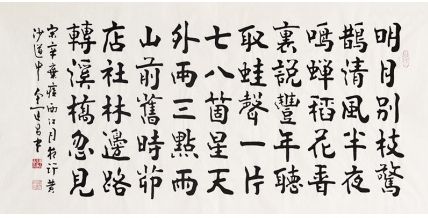 明月别枝驚
鵲清風半夜
鳴蟬稻花香
裏說豐年聽
取蛙聲一片
七八箇星天
外兩三點雨
山前舊時茆
店社林邊路
轉溪橋忽見
宋辛棄疾西江月夜行黄
沙道中 金運昌書